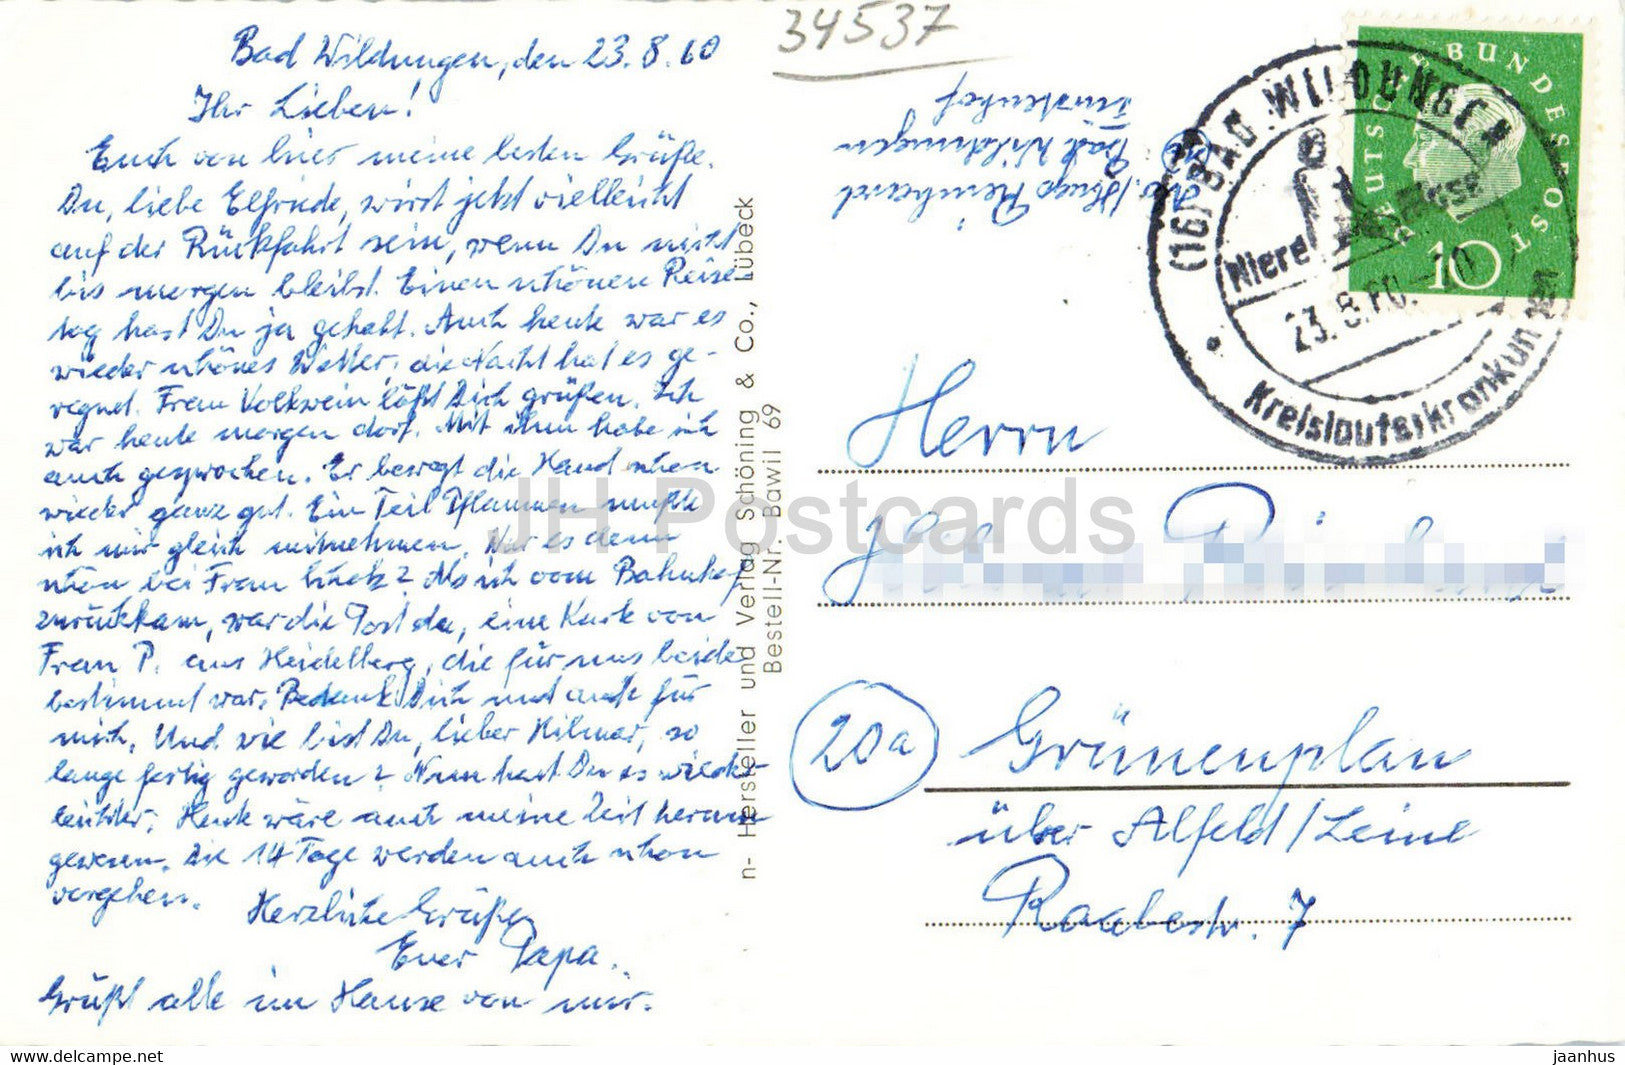 Bad Wildungen, den 23.8.60
Ihr Lieben!
Euch von hier meine besten Grüße.
Du, liebe Elfriede, wirst jetzt vielleicht
auf der Rückfahrt sein, wenn Du nicht
bis morgen bleibst. Einen schönen Reise-
tag hast Du ja gehabt. Auch heute war es
wieder schönes Wetter, die Nacht hat es ge-
regnet. Frau Volkwein läßt Dich grüßen. Ich
war heute morgen dort. Mit ihm habe ich
auch gesprochen. Er bewegt die Hand schon
wieder ganz gut. Ein Teil Pflaumen mußte
ich mir gleich mitnehmen. War es denn
schön bei Frau ? Als ich vom Bahnhof
zurückkam, war die Post da, eine Karte von
Frau P. aus Heidelberg, die für uns beide
bestimmt war. Bedank Dich und auch für
mich. Und wie bist Du, lieber Hilmar, so
lange fertig geworden? Nun hast Du es wieder
leichter. Heute wäre auch meine Zeit herum
gewesen. Die 14 Tage werden auch schon
vergehen.
Herzliche Grüße
Euer Papa.
Grüßt alle im Hause von mir.
n- Hersteller und Verlag Schöning & Co., Lübeck
Bestell-Nr. Bawil 69
34537
Hugo Reinhard
Bad Wildungen
Fürstenhof
(16) BAD WILDUNGEN
Niere
23.8.60.-10
Kreislauferkrankungen
DEUTSCHE BUNDESPOST
10
Herrn
20a
Grünenplan
über Alfeld/Leine
Raabestr. 7
JH Postcards
www.delcampe.net
jaanhus